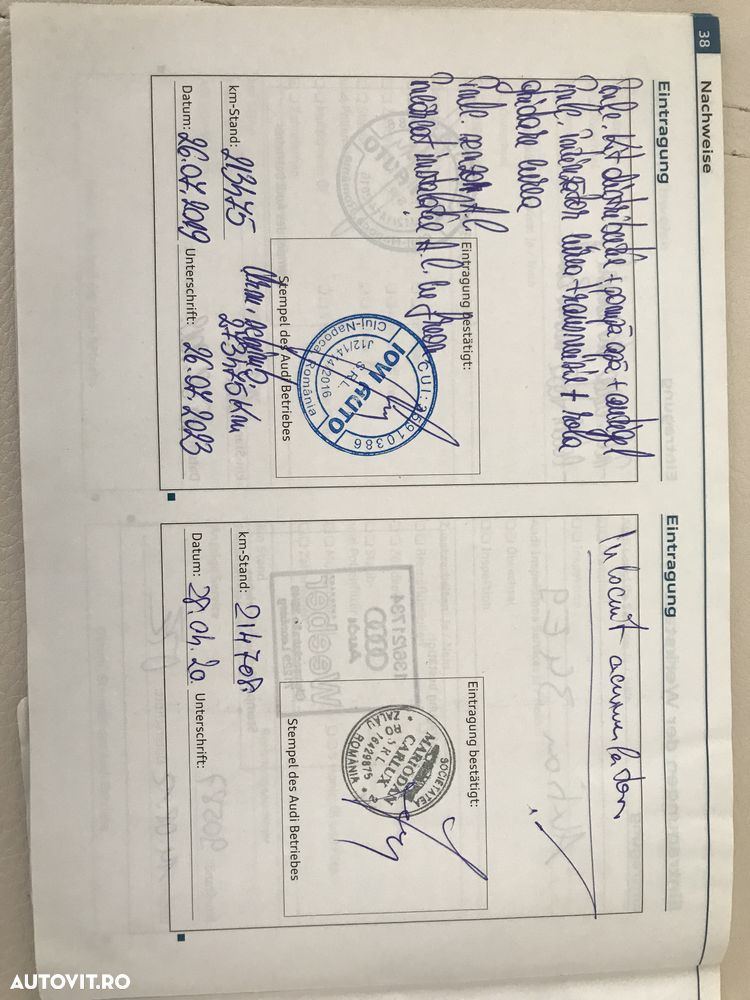 38
Nachweise
Eintragung
Inloc. Kit distributie + pompă apă + antigel
Inloc. intinzator curea transmisie + rola
ghidare curea
Inloc. senzor A.C.
Incarcat instalatie A.C. cu freon
Eintragung bestätigt:
C.U.I: 35910386
IOW AUTO
S.R.L.
J12/1414/2016
Cluj-Napoca România
Stempel des Audi Betriebes
km-Stand: 213475
273475 Km
Datum: 26.07.2019 Unterschrift: 26.07.2023
Eintragung
Inlocuit acumulator
Eintragung bestätigt:
SOCIETATEA
MARIODAN
CARLUX
S R L
RO 16429875
ZALĂU ROMÂNIA
Stempel des Audi Betriebes
km-Stand: 214708
Datum: 28.04.20 Unterschrift:
AUTOVIT.RO